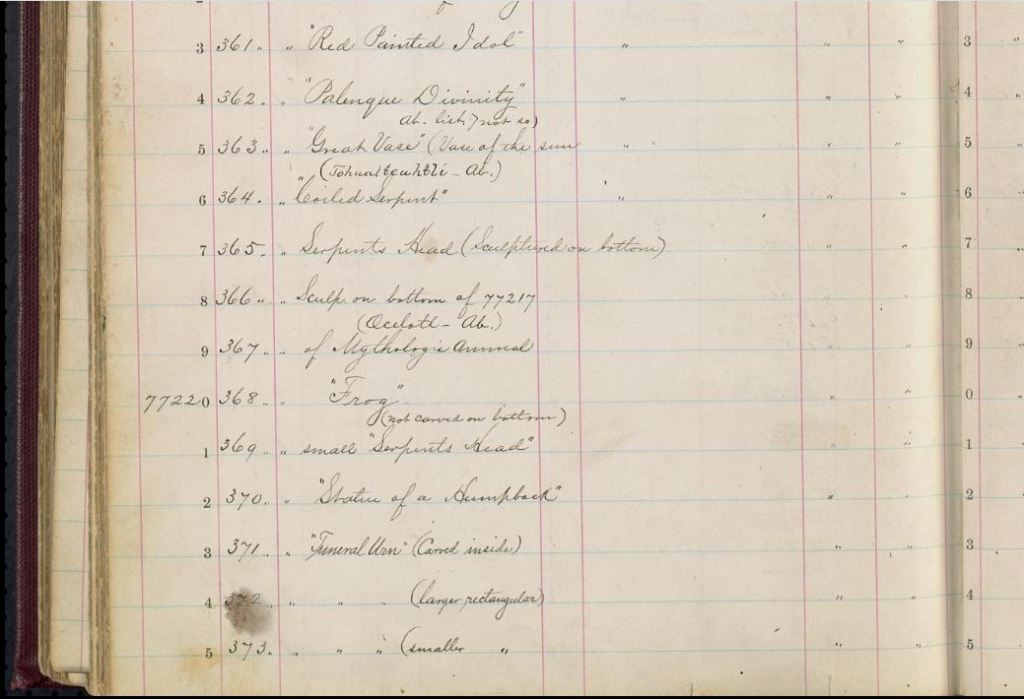 3 361. " "Red Painted Idol" " " " 3 "
4 362. " "Palenque Divinity" " " " 4 "
Ab. list. ? not so)
5 363. " "Great Vase" (Vase of the sun " " " 5 "
(Tohua Ab.)
6 364. " "Coiled Serpent" " " " 6 "
7 365. " Serpents Head (Sculptured on bottom) " " 7 "
8 366. " Sculp. on bottom of 77217 " " 8 "
(Ocelotl - Ab.)
9 367. " of Mythologic Animal " " 9 "
77220 368. " "Frog" " " 0 "
(not carved on bottom)
1 369. " small "Serpents Head" " " 1 "
2 370. " "Statue of a Humpback" " " 2 "
3 371. " "Funeral Urn" (Carved inside) " " 3 "
4 372. " " " (larger rectangular) " " 4 "
5 373. " " " (smaller " " " 5 "